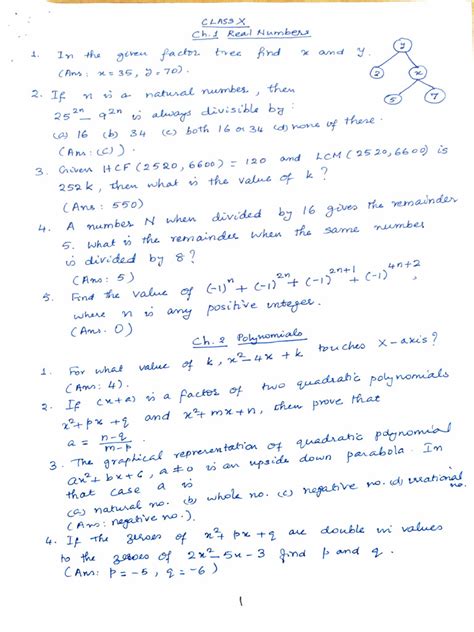 CLASS X
Ch.1 Real Numbers
1. In the given factor tree find x and y.
(Ans: x=35, y=70).
y
2
x
5
7
2. If n is a natural number, then
25²ⁿ - 9²ⁿ is always divisible by:
(a) 16 (b) 34 (c) both 16 or 34 (d) none of these.
(Ans: (C)).
3. Given HCF (2520, 6600) = 120 and LCM (2520, 6600) is
252k, then what is the value of k?
(Ans: 550)
4. A number N when divided by 16 gives the remainder
5. What is the remainder when the same number
is divided by 8?
(Ans: 5)
5. Find the value of (-1)ⁿ + (-1)²ⁿ + (-1)²ⁿ⁺¹ + (-1)⁴ⁿ⁺²,
where n is any positive integer.
(Ans. 0)
Ch. 2 Polynomials
1. For what value of k, x²-4x+k touches X-axis?
(Ans: 4).
2. If (x+a) is a factor of two quadratic polynomials
x²+px+q and x²+mx+n, then prove that
a = n-q/m-p
3. The graphical representation of quadratic polynomial
ax²+bx+6, a≠0 is an upside down parabola. In
that case a is
(a) natural no. (b) whole no. (c) negative no. (d) irrational no.
(Ans: negative no.).
4. If the zeroes of x²+px+q are double in values
to the zeroes of 2x²-5x-3 find p and q.
(Ans: p=-5, q=-6)
1